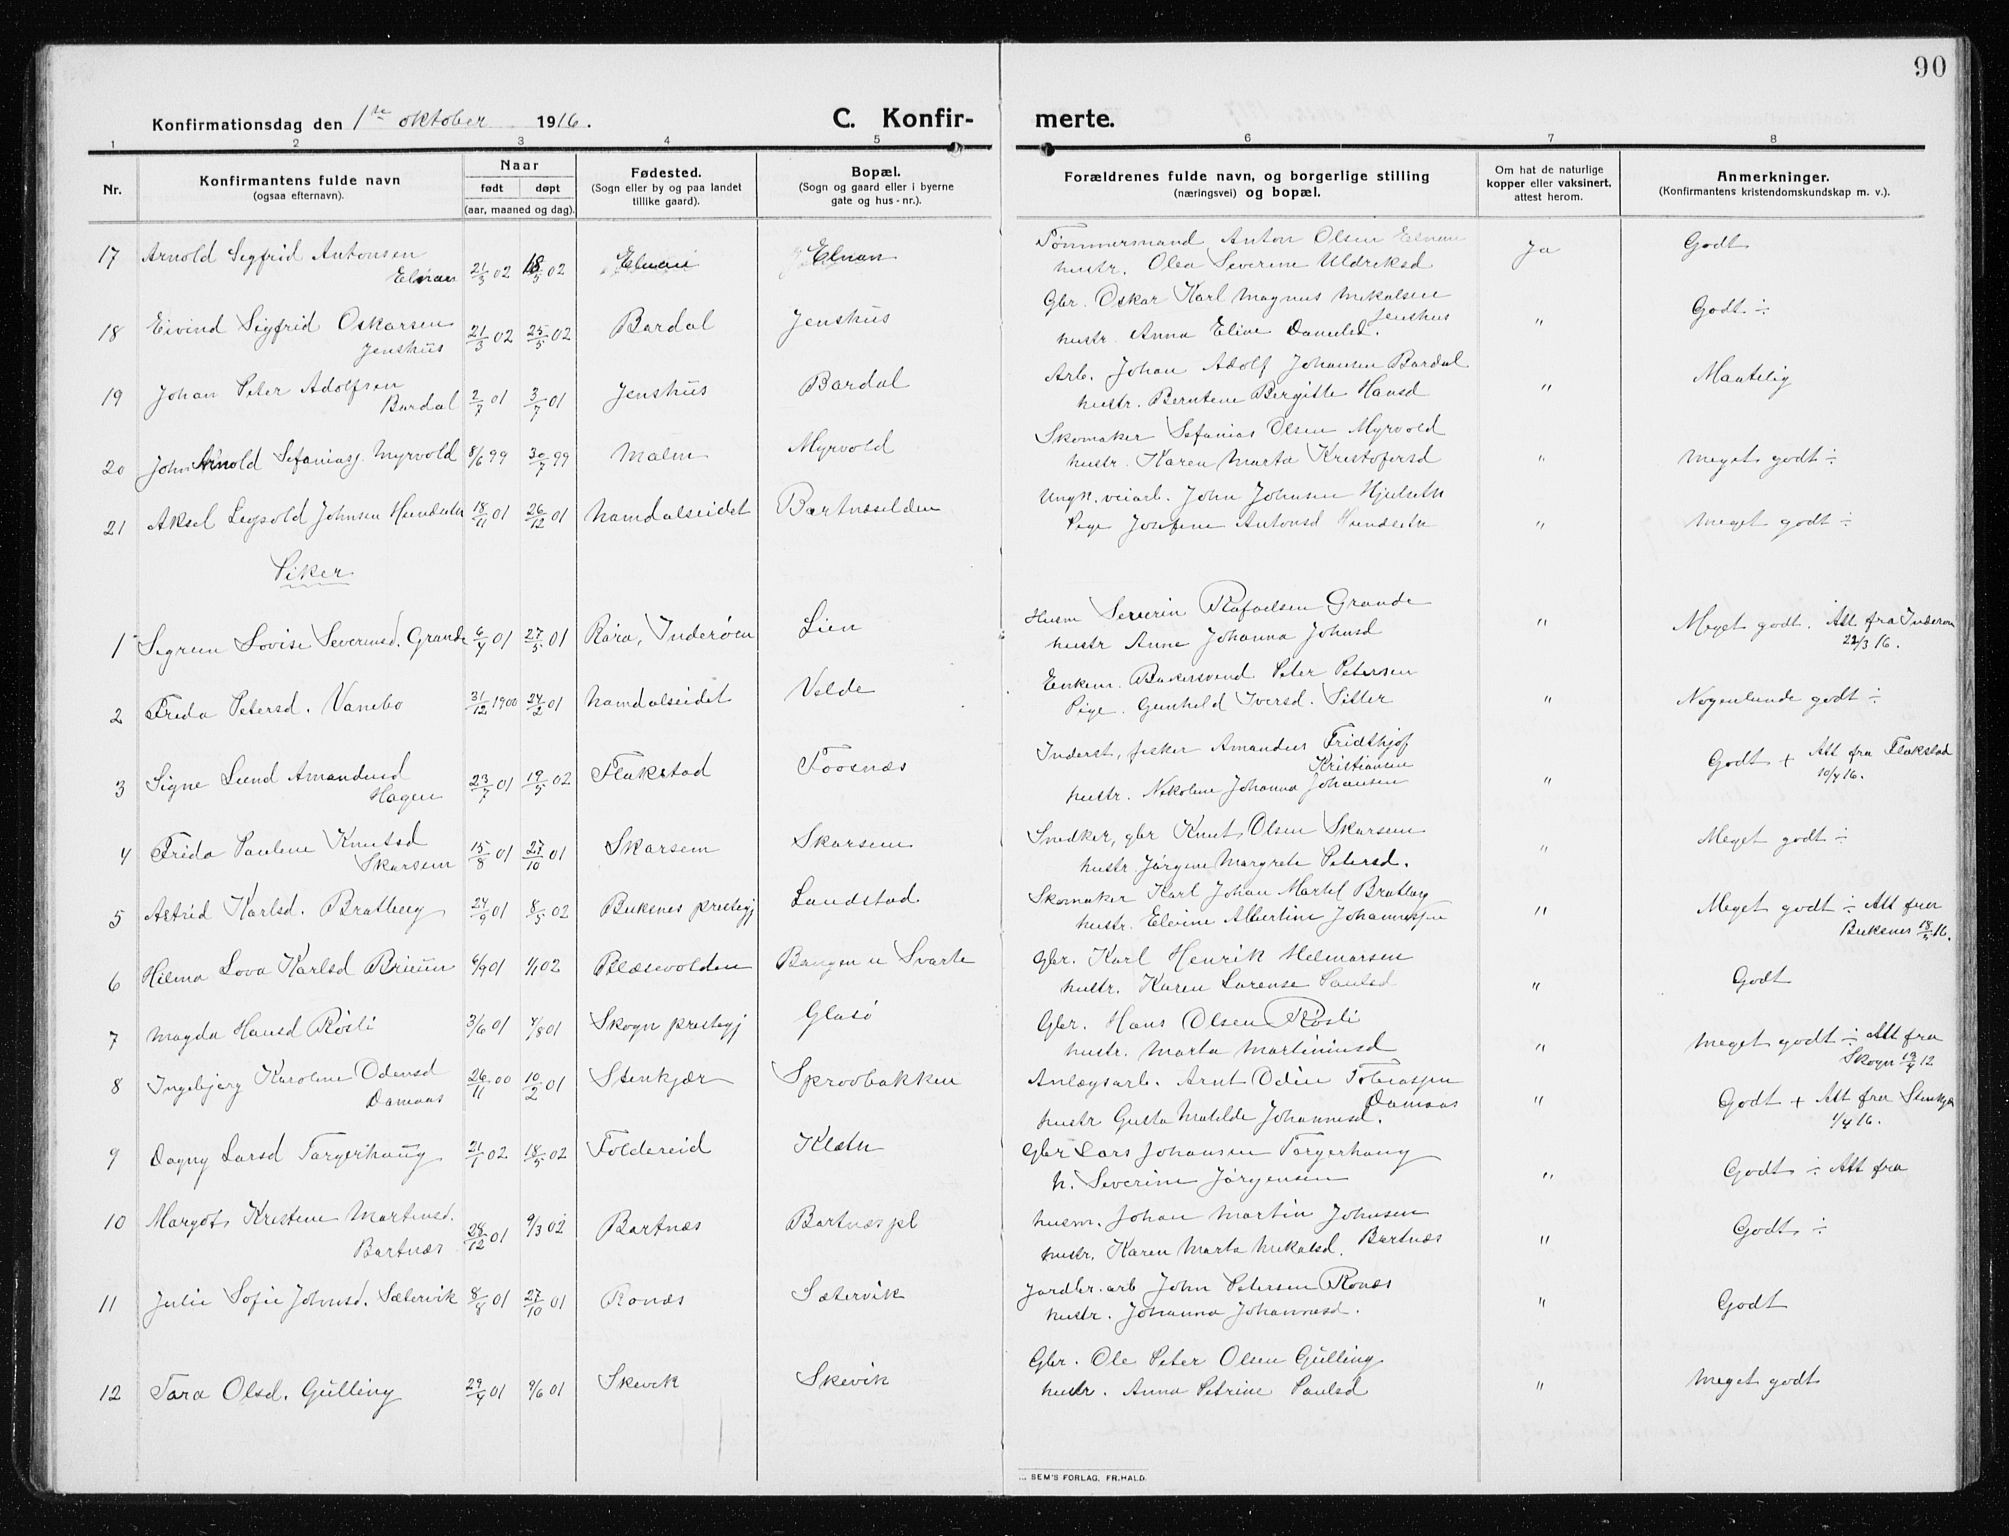 90
Konfirmationsdag den 1ste oktober 1916. C. Konfir- merte.
1 2 3 4 5 6 7 8
Nr. Konfirmantens fulde navn (ogsaa efternavn). Naar født døpt (aar, maaned og dag). Fødested. (Sogn eller by og paa landet tillike gaard). Bopæl. (Sogn og gaard eller i byerne gate og hus-nr.). Forældrenes fulde navn, og borgerlige stilling (næringsvei) og bopæl. Om hat de naturlige kopper eller vaksinert, attest herom. Anmerkninger. (Konfirmantens kristendomskundskap m. v.).
17 Arnold Sigfrid Antonsen Elnan 21/3 02 18/5 02 Elnan Elnan Tømmermand Anton Olsen Elnan Ja Godt
hustr. Olea Severine Uldriksd
18 Eivind Sigfrid Oskarsen Jenshus 21/3 02 25/5 02 Bardal Jenshus Gbr. Oskar Karl Magnus Mikalsen Jenshus " Godt ÷
hustr. Anna Eline Danielsd.
19 Johan Peter Adolfsen Bardal 2/7 01 3/7 01 Jenshus Bardal Arb. Johan Adolf Johansen Bardal " Maatelig
hustr. Berntine Bergitte Hansd
20 John Arnold Sefaniasj. Myrvold 8/6 99 30/7 99 Malm Myrvold Skomaker Sefanias Olsen Myrvold " Meget godt ÷
hustr. Karen Marta Kristofersd
21 Aksel Leopold Johnsen 18/11 01 26/12 01 Namdalseidet Ungk. veiarb. John Johnsen " Meget godt ÷
Pige Josefine Antonsd
Piker
1 Sigrun Lovise Severinsd. Grande 6/4 01 27/5 01 Røra, Inderøen Lien Husm Severin Rafaelsen Grande " Meget godt. Att fra Inderøen
hustr Anne Johanna Johnsd 22/3 16.
2 Freda Petersd. Vanebo 31/12 1900 24/2 01 Namdalseidet Velde Enkem. Bakersvend Peter Petersen " Nogenlunde godt ÷
Pige. Gunhild Iversd. Sitter
3 Signe Lund Amandusd Hagen 23/7 01 19/5 02 Flakstad Foosnæs Inderst, fisker Amandus Fridthjof Kristiansen " Godt + Att fra Flakstad
hustr. Nikoline Johanna Johansen 10/4 16.
4 Frida Pauline Knutsd Skarsem 15/8 01 27/10 01 Skarsem Skarsem Snedker, gbr Knut Olsen Skarsem " Meget godt ÷
hustr. Jørgine Margrete Petersd.
5 Astrid Karlsd. Bratberg 24/9 01 8/5 02 Buksnes prestegj Landstad Skomaker Karl Johan Martel Bratberg " Meget godt ÷ Att fra
hustr. Elvine Albertine Johannesen Buksnes 18/5 16.
6 Hilma Lova Karlsd Bruun 6/9 01 1/1 02 Blæsevolden Bangen u Svarte Gbr. Karl Henrik Helmarsen " Godt
hustr. Karen Lorense Paulsd
7 Magda Hansd Røsli 3/6 01 4/8 01 Skogn prestegj Glasø Gbr. Hans Olsen Røsli " Meget godt ÷ Att fra
hustr. Marta Martiniusd Skogn 19/4 12
8 Ingebjørg Karoline Odensd Damaas 26/11 00 10/2 01 Stenkjær Sprovbakken Anlægsarb. Arnt Odin Tobiassen Damaas " Godt + Att fra Stenkjær
hustr Gusta Matilde Johannesd. 1/4 16.
9 Dagny Larsd Targerhaug 21/1 02 18/5 02 Foldereid Klætn Gbr Lars Johansen Targerhaug " Godt ÷ Att fra
h. Severine Jørgensen
10 Margot Kristine Martinsd. Bartnæs 28/12 01 9/3 02 Bartnæs Bartnæs pl Husm. Johan Martin Johnsen Bartnæs " Godt ÷
hustr. Karen Marta Mikalsd.
11 Julie Sofie Johnsd. Sætervik 8/8 01 27/10 01 Ronæs Sætervik Jordbr. arb John Petersen Ronæs " Godt
hustr. Johanna Johannesd.
12 Tora Olsd. Gulling 29/4 01 9/6 01 Skevik Skevik Gbr. Ole Peter Olsen Gulling " Meget godt
hustr. Anna Petrine Paulsd
SEM'S FORLAG, FR.HALD.